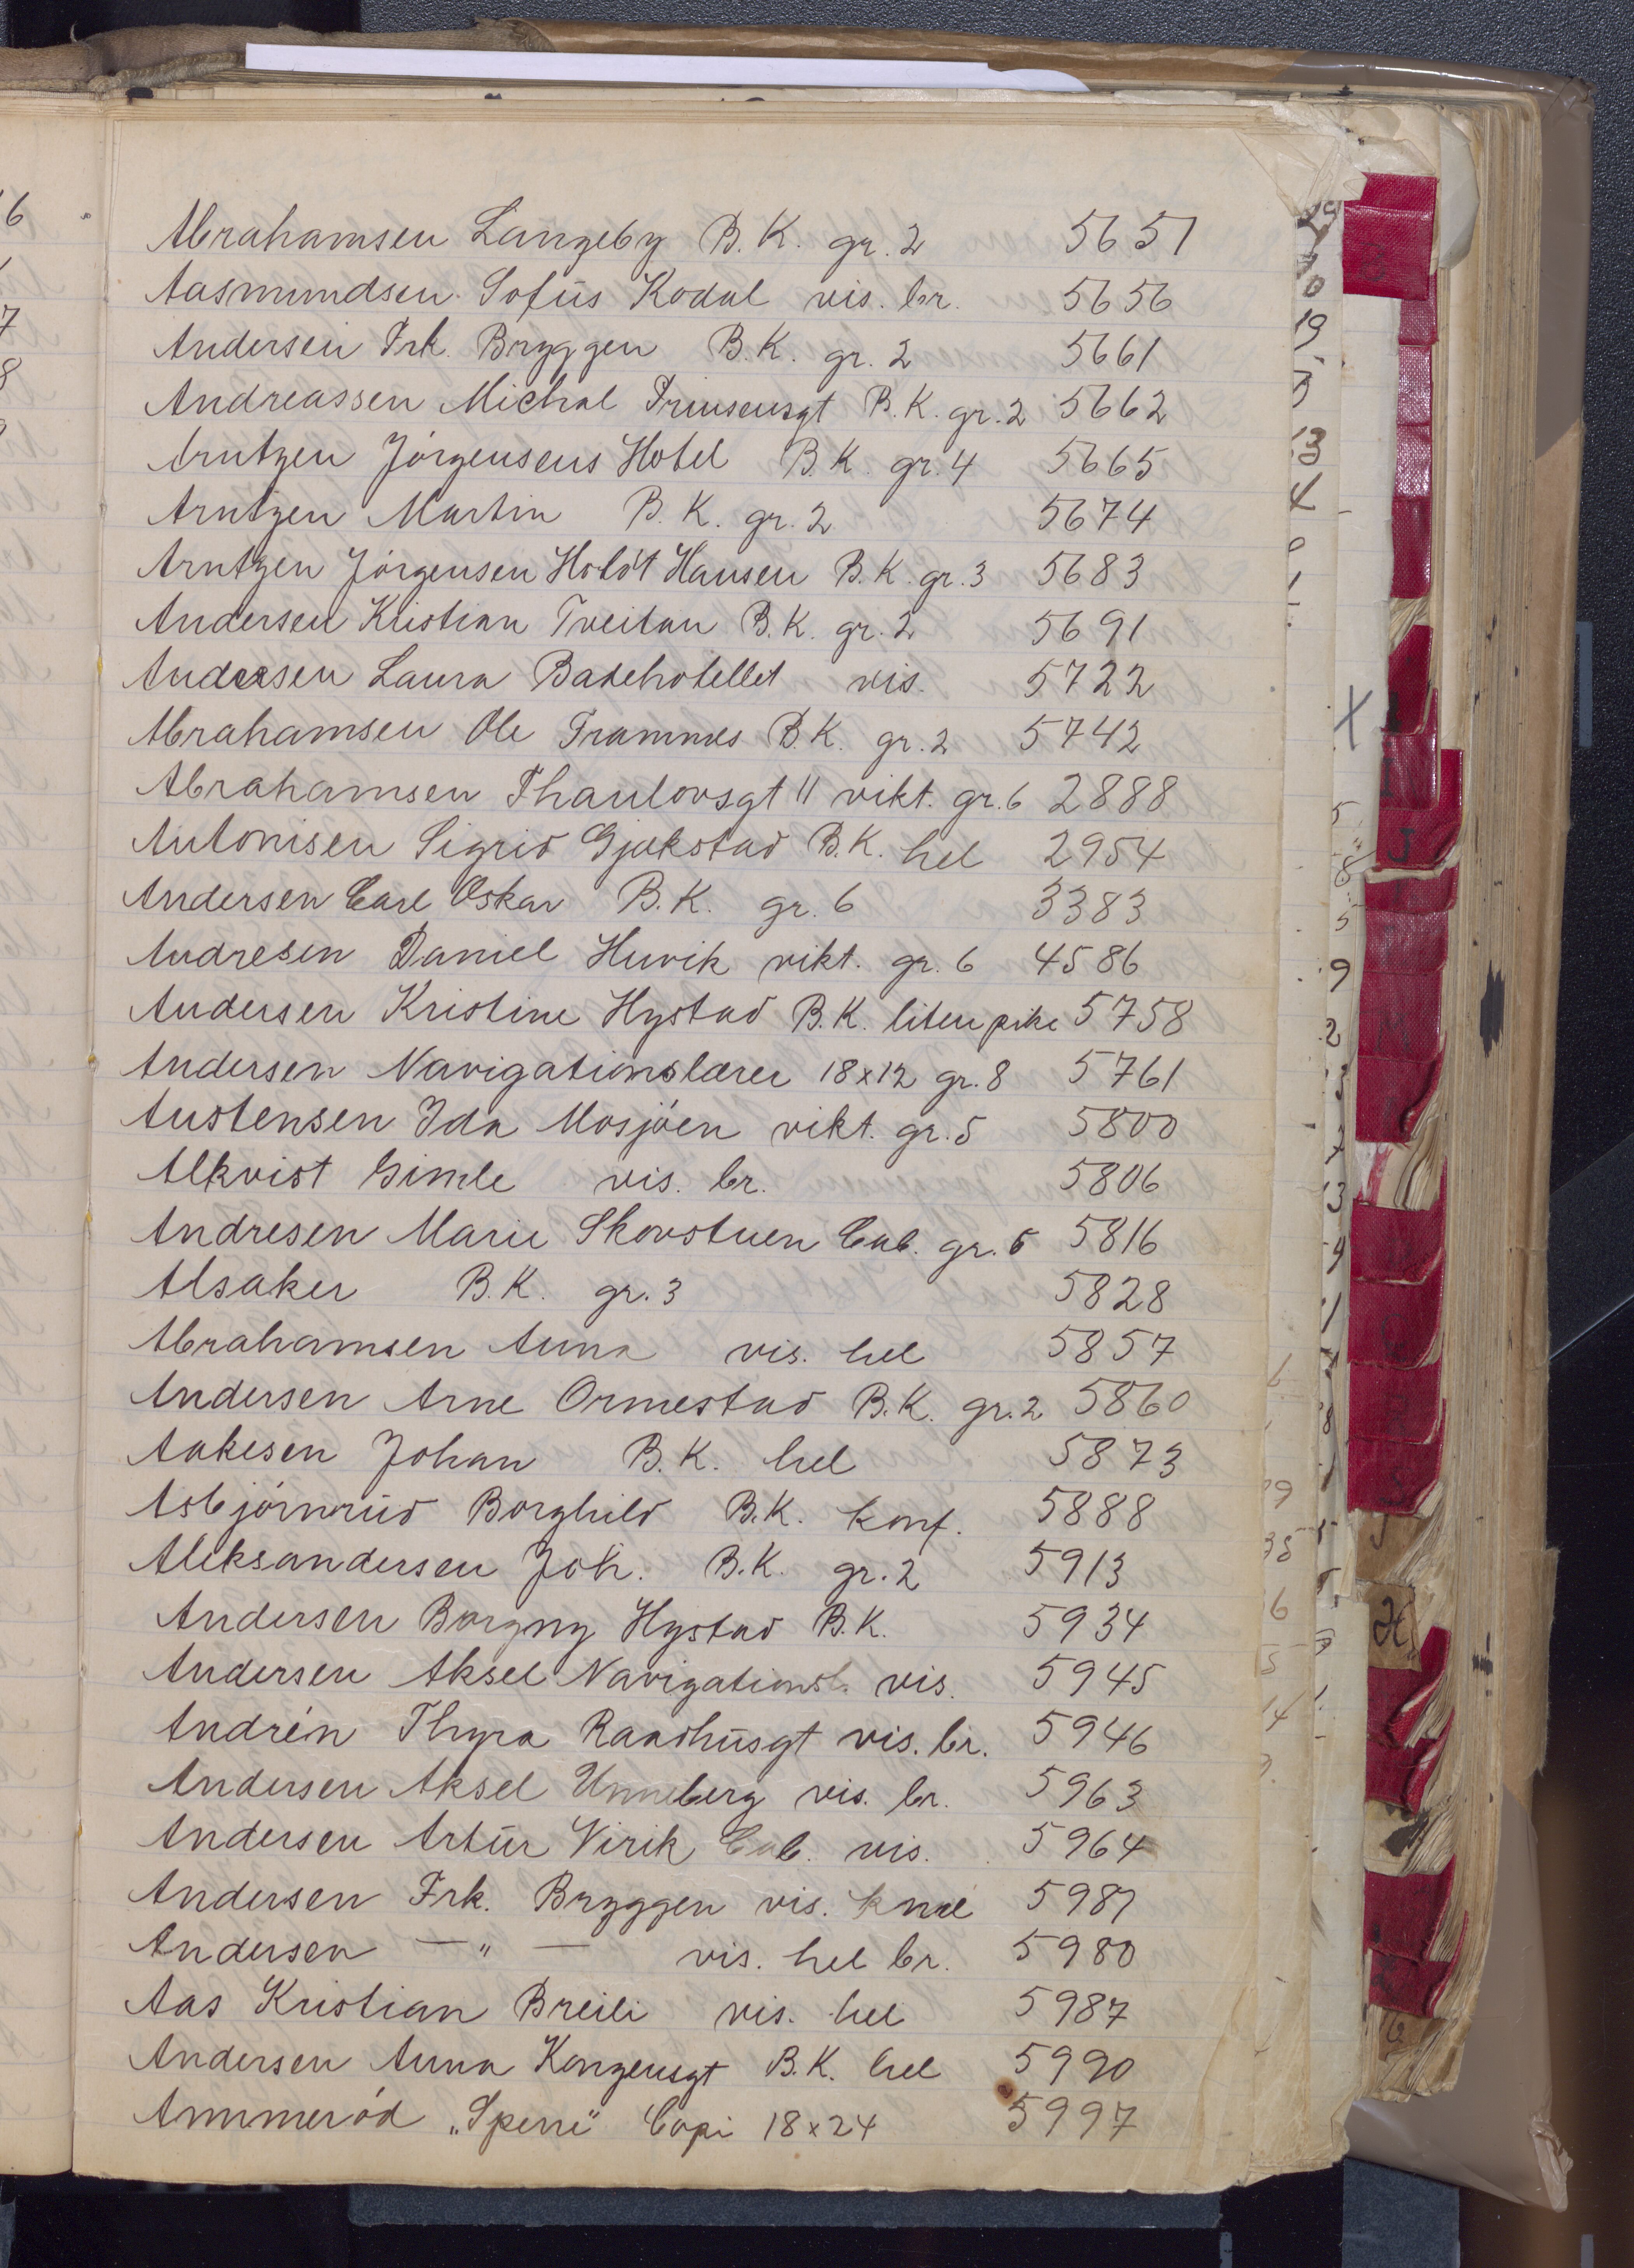 Abrahamsen Langeby B.K. gr. 2 5651
Aasmundsen Sofus Kodal vis. br. 5656
Andersen Frk. Bryggen B.K. gr. 2 5661
Andreassen Michal Prinsensgt B.K. gr. 2 5662
Arntzen Jörgensens Hotel B.K. gr. 4 5665
Arntzen Martin B.K. gr. 2 5674
Arntzen Jörgensen Holdt Hansen B.K. gr. 3 5683
Andersen Kristian Tveitan B.K. gr. 2 5691
Andersen Laura Badehotellet vis. 5722
Abrahamsen Ole Framnes B.K. gr. 2 5742
Abrahamsen Thaulovsgt 11 vikt. gr. 6 2888
Antonisen Sigrid Gjekstad B.K. hel 2954
Andersen Carl Oskar B.K. gr. 6 3383
Andresen Daniel Huvik vikt. gr. 6 4586
Andersen Kristine Hystad B.K. liten pike 5758
Andersen Navigationslærer 18x12 gr. 8 5761
Austensen Ida Mosjöen vikt. gr. 5 5800
Alkvist Gimle vis. br. 5806
Andresen Marie Skovstuen Cab. gr. 5 5816
Alsaker B.K. gr. 3 5828
Abrahamsen Anna vis. hel 5857
Andersen Arne Ormestad B.K. gr. 2 5860
Aakesen Johan B.K. hel 5873
Asbjörnrud Borghild B.K. konf. 5888
Aleksandersen Joh. B.K. gr. 2 5913
Andersen Borgny Hystad B.K. 5934
Andersen Aksel Navigationsl. vis. 5945
Andrén Thyra Raadhusgt vis. br. 5946
Andersen Aksel Unneberg vis. br. 5963
Andersen Artur Virik Cab. vis. 5964
Andersen Frk. Bryggen vis. knæ 5981
Andersen — „ — vis. hel br. 5980
Aas Kristian Breili vis. hel 5987
Andersen Anna Kongensgt B.K. hel 5990
Ammeröd „Sperre" Copi 18x24 5997